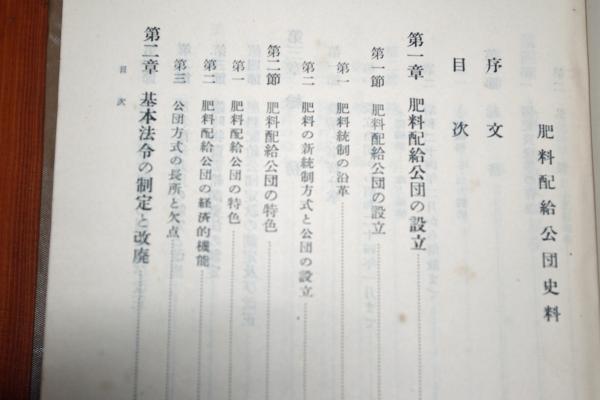 肥料配給公団史料
序文
目次
第一章 肥料配給公団の設立
第一節 肥料配給公団の設立
第一 肥料統制の沿革
第二 肥料の新統制方式と公団の設立
第二節 肥料配給公団の特色
第一 肥料配給公団の特色
第二 肥料配給公団の経済的機能
第三 公団方式の長所と欠点
第二章 基本法令の制定と改廃
目次